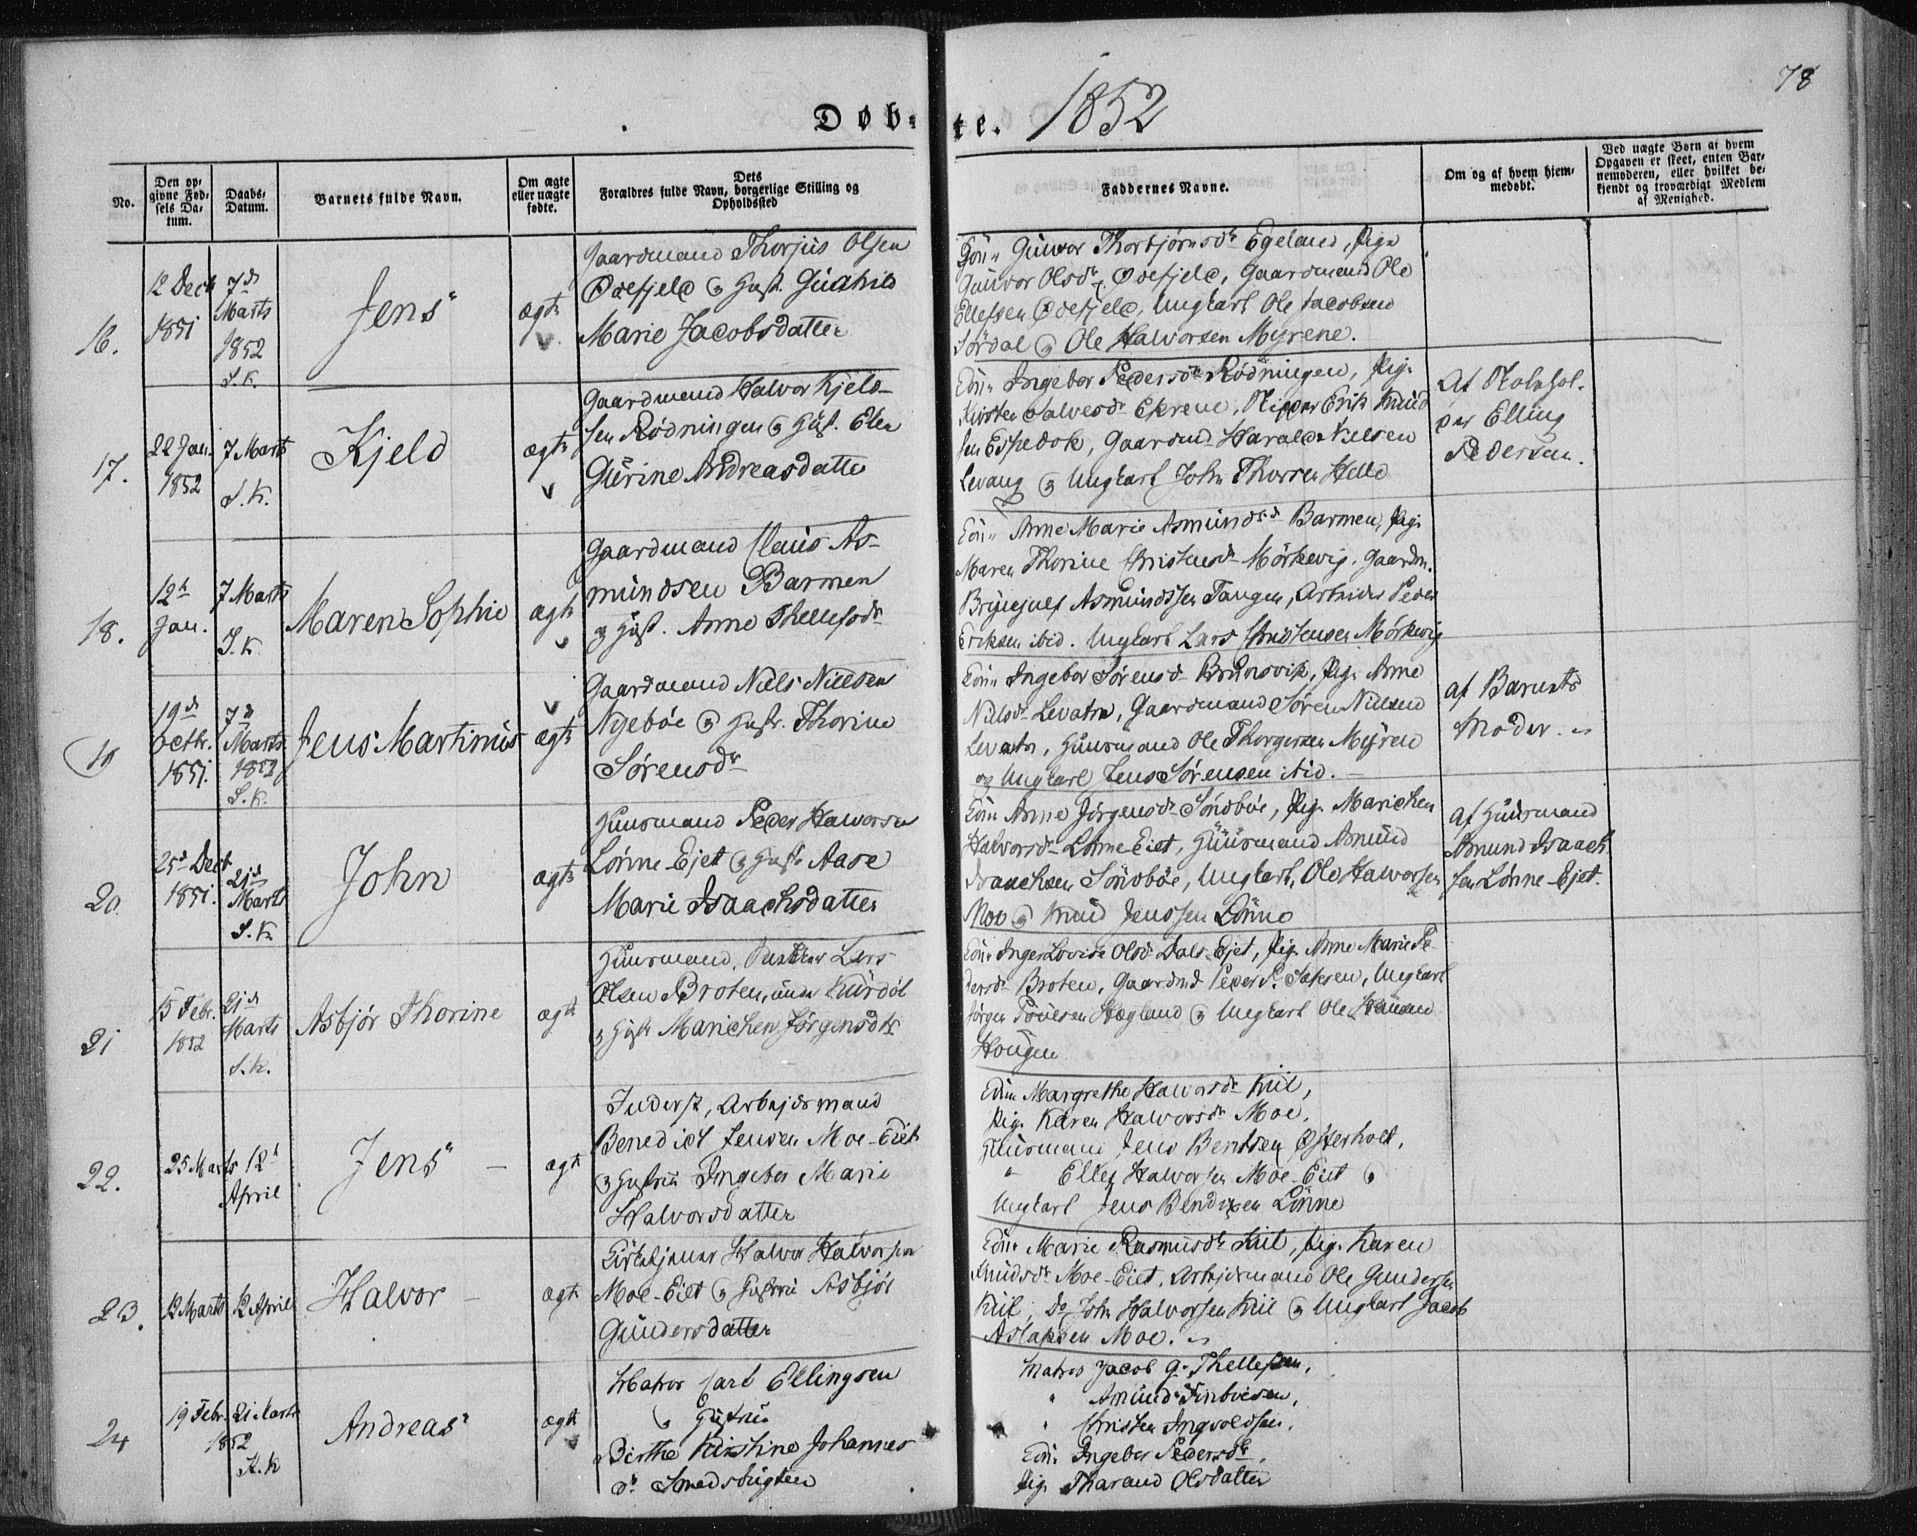 78
Døbte. 1852
No.
Den op-
givne Fød-
sels Da-
tum.
Daabs-
Datum.
Barnets fulde Navn.
Om ægte
eller uægte
fødte.
Dets
Forældres fulde Navn, borgerlige Stilling og
Opholdssted
Faddernes Navne.
Om og af hvem hjem-
medøbt.
Ved uægte Børn af hvem
Opgaven er skeet, enten Bar-
nemoderen, eller hvilket be-
kjendt og troværdigt Medlem
af Menighed.
16.
12 Decb
1851
7de
Marts
1852
S.K.
Jens
ægte
Gaardmand Thorjus Olsen
Ødefjeld og Hust. Gunhild
Marie Jacobsdatter
Kon: Gunvor Thorbjørnsdr Egeland, Pige
Gunvor Olsdr Ødefjeld, Gaardmand Ole
Ellefsen Ødefjeld, Ungkarl Ole Jacobsen
Sørdal og Ole Halvorsen Myrene.
17.
22 Jan.
1852
7 Marts
S.K.
Kjeld
ægte
Gaardmand Halvor Kjels-
sen Rødningen og Hust. Elen
Gurine Andreasdatter
Kon: Ingebor Pedersdr Rødningen, Pige
Kirsten Salvesdr Ekrene, Skipper Erik Knud
sen Espedok, Gaardmd Harald Nielsen
Levang og Ungkarl John Thorsen Helle
Af Skolehol-
der Elling
Pedersen.
18.
12te
Jan.
7 Marts
S.K.
Maren Sophie
ægte
Gaardmand Claus As-
mundsen Barmen
og Hust. Anne Thellefsdr
Kon: Anne Marie Asmundsdr Barmen, Pige
Maren Thorine Christensdr Mørkevig, Gaardm.
Brynjulf Asmundssen Tangen, Arbeider Peder
Eriksen ibid. Ungkarl Lars Christensen Mørkevig
19
19de
Octbr.
1851.
7de
Marts
1852
S.K.
Jens Martinius
ægte
Gaardmand Niels Nielsen
Nyebøe og Hustr. Thorine
Sørensdr
Kon: Ingebor Sørensdr Brunsvik, Pige Anne
Nielsdr Levatn, Gaardmand Søren Nielsen
Levatn, Huusmand Ole Thorgersen Myren
og Ungkarl Jens Sørensen ibid.
af Barnets
Moder.
20.
25de Decb
1851.
21de
Marts
S.K.
John
ægte
Huusmand Peder Halvorsen
Lønne-Ejet og Hustr Aase
Marie Isaachsdatter
Kon: Anne Jørgensdr Søndbøe, Pige Marichen
Halvorsdr Lønne-Eiet, Huusmand Amund
Isaachsen Søndbøe, Ungkarl, Ole Halvorsen
Moe og Knud Jenssen Lønne
af Huusmand
Amund Isaach
sen Lønne-Ejet.
21
15 Febr.
1852
21de
Marts
S.K.
Asbjør Thorine
ægte
Huusmand, Lars
Olsen Broten, under Kurdøl
og Hustr Marichen Jørgensdtr
Kon: Inger Lovise Olsdr Dals-Ejet, Pige Anne Marie Pe
dersdr Broten, Gaardmd Peder P. Saksen, Ungkarl
Jørgen Povelsen Høgland og Ungkarl Ole Hansen
Hougen
22.
25 Marts
12te
April
Jens
ægte
Inderst, Arbejdsmand
Benedict Jensen Moe-Eiet
og Hustru Ingebor Marie
Halvorsdatter
Kone Margrethe Halvorsdr Kiil,
Pige Karen Halvorsdr Moe,
Huusmand Jens Bendtsen Østerholt,
" Ellef Halvorsen Moe-Eiet og
Ungkarl Jens Bendixen Lønne
23.
12 Marts
12 April
Halvor
ægte
Kirketjener Halvor Halvorsen
Moe-Eiet og Hustru Asbjør
Gundersdatter
Kone Marie Rasmusdr Kiil, Pige Karen
Knudsdr Moe-Eiet, Arbejdsmand Ole Gundersen
Kiil, do John Halvorsen Kiil og Ungkarl Jacob
Aslaksen Moe.
24
19 Febr.
1852
21 Marts
K.K
Andreas
ægte
Matros Carl Ellingsen
og Hustru
Birthe Kirstine Johannes
dr Smedsbugten
Matros Jacob G. Thellefsen,
" Amund Finboesen,
" Christen Ingvoldsen,
Kone Ingebor Pedersdr,
Pige Tharand Olsdatter